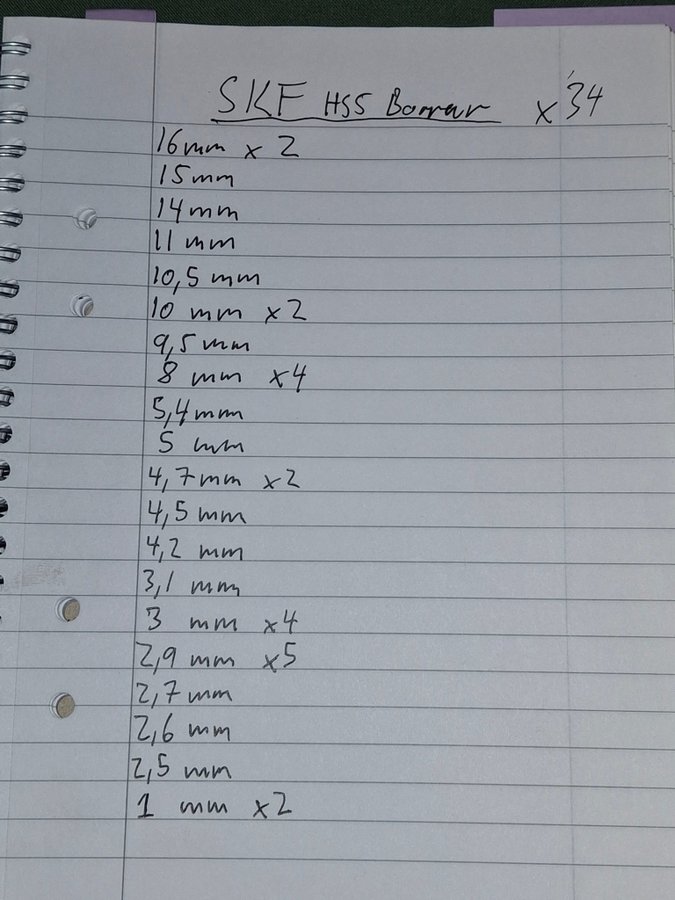 SKF HSS Borrar x 34
16mm x 2
15mm
14mm
11 mm
10,5 mm
10 mm x2
9,5mm
8 mm x4
5,4mm
5 mm
4,7mm x2
4,5 mm
4,2 mm
3,1 mm
3 mm x4
2,9 mm x5
2,7 mm
2,6 mm
2,5 mm
1 mm x2